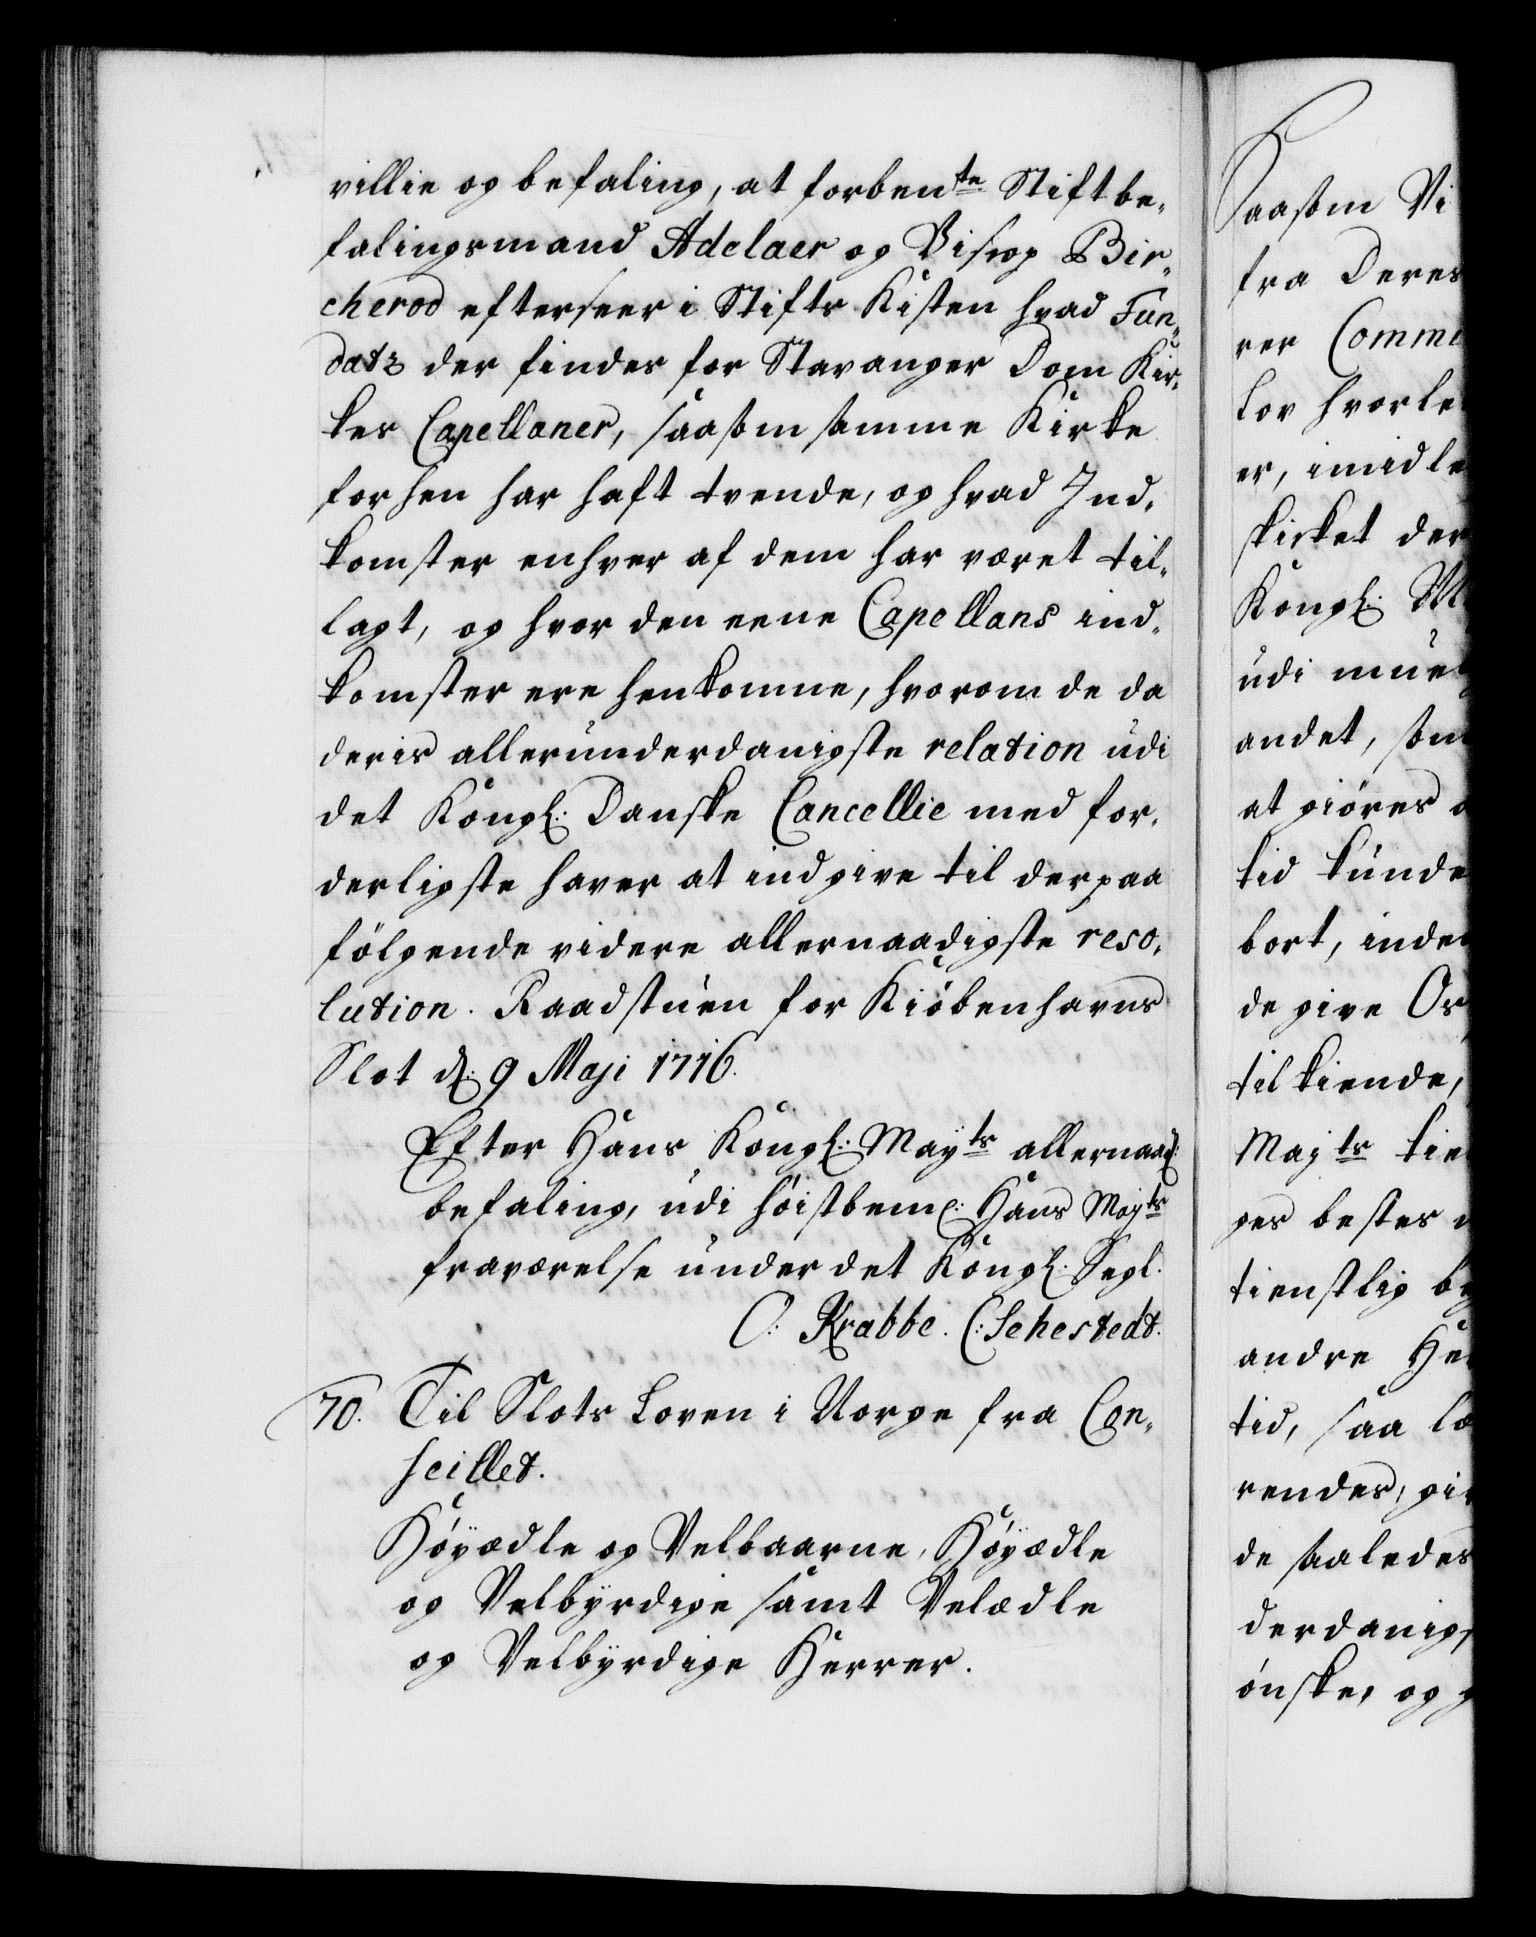 villie og befaling, at forben<sup>te</sup> Stiftbe-
falingsmand Adelaer og Biscop Bir-
cherod efterseer i Stifts Kisten hvad Fun-
datz der findes for Stavanger Dom Kir-
kes Capellaner, saasom samme Kirke
forhen har haft tvende, og hvad Ind-
komster enhver af dem har været til-
lagt, og hvor den eene Capellans ind-
komster ere henkomne, hvorom de da
deris allerunderdanigste relation udi
det Kongl: Danske Cancellie med for-
derligste haver at indgive til derpaa
følgende videre allernaadigste reso-
lution. Raadstuen for Kiøbenhavns
Slot d: 9 Maji 1716.
Efter Hans Kongl: May<sup>ts</sup> allernaad:
befaling, udi høistbem: Hans May<sup>ts</sup>
fraværelse under det Kongl: Segl.
O: Krabbe. C: Sehestedt.
70. Til Slots Loven i Norge fra Con-
seillet.
Høyædle og Velbaarne, Høyædle
og Velbyrdige samt Velædle
og Velbyrdige Herrer.
Saasom Vi
fra Deres
rer
Lov
er,
skicket der
Kongl:
udi
andet, som
at giøres
tid kunde
bort,
de give
tilkiende,
Maj<sup>ts</sup>
ges bestes
tienstlig
andre
tid, saa
rendes,
de saaledes
ønske, og